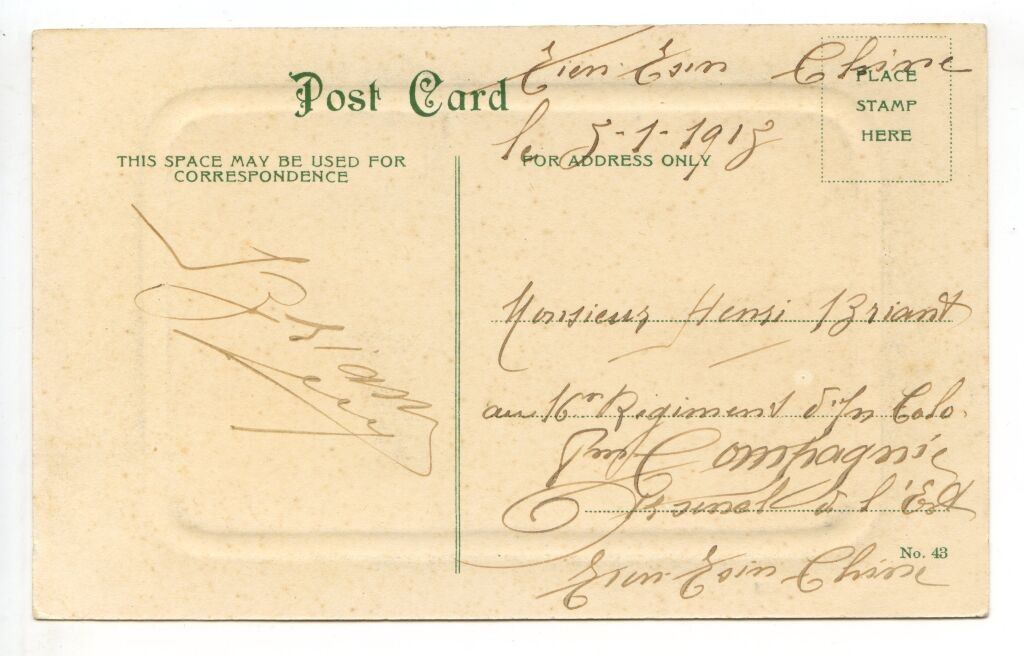 Post Card
Tien-Tsin Chine
le 5-1-1915
PLACE
STAMP
HERE
THIS SPACE MAY BE USED FOR
CORRESPONDENCE
FOR ADDRESS ONLY
Briand
Monsieur Henri Briant
au 16e Regiment d'In Colo.
Compagnie
Arsenal à l'Est
No. 43
Tien-Tsin Chine